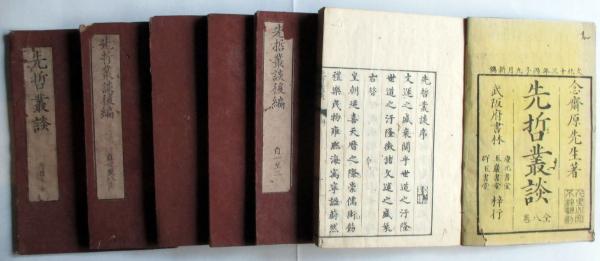 文化十三年丙子九月新鐫
念齋原先生著
先哲叢談
全八卷
武阪府書林
慶元書堂
玉巖書堂
群玉書堂
梓行
先哲叢談序
文運之盛衰關乎世道之汙隆
世道之汙隆徴諸文運之盛衰
古昔
皇朝延喜天曆之隆崇儒術飭
禮樂民物雍熙海寓寧謐蔚然
先哲叢談後編
先哲叢談後編
先哲叢談